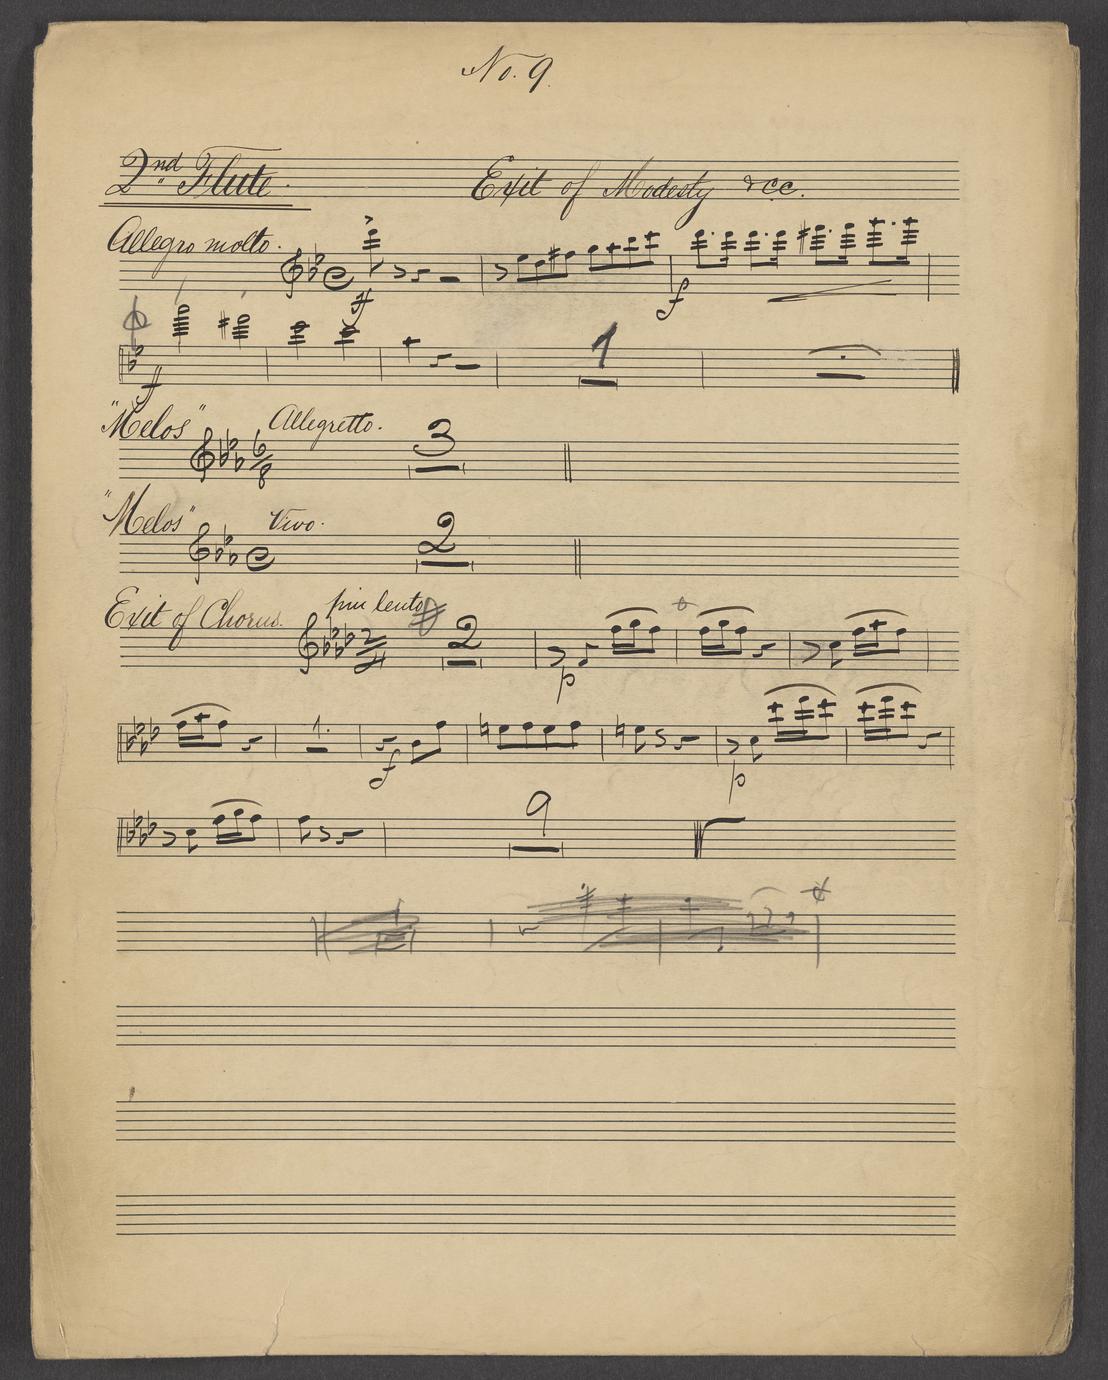 No. 9.
2nd Flute. Exit of Modesty &cc.
Allegro molto.
f f
1
f
"Melos" Allegretto.
6 8 3
"Melos" Vivo.
2
Exit of Chorus. piu lento
2 4 2
p
1.
f p
9